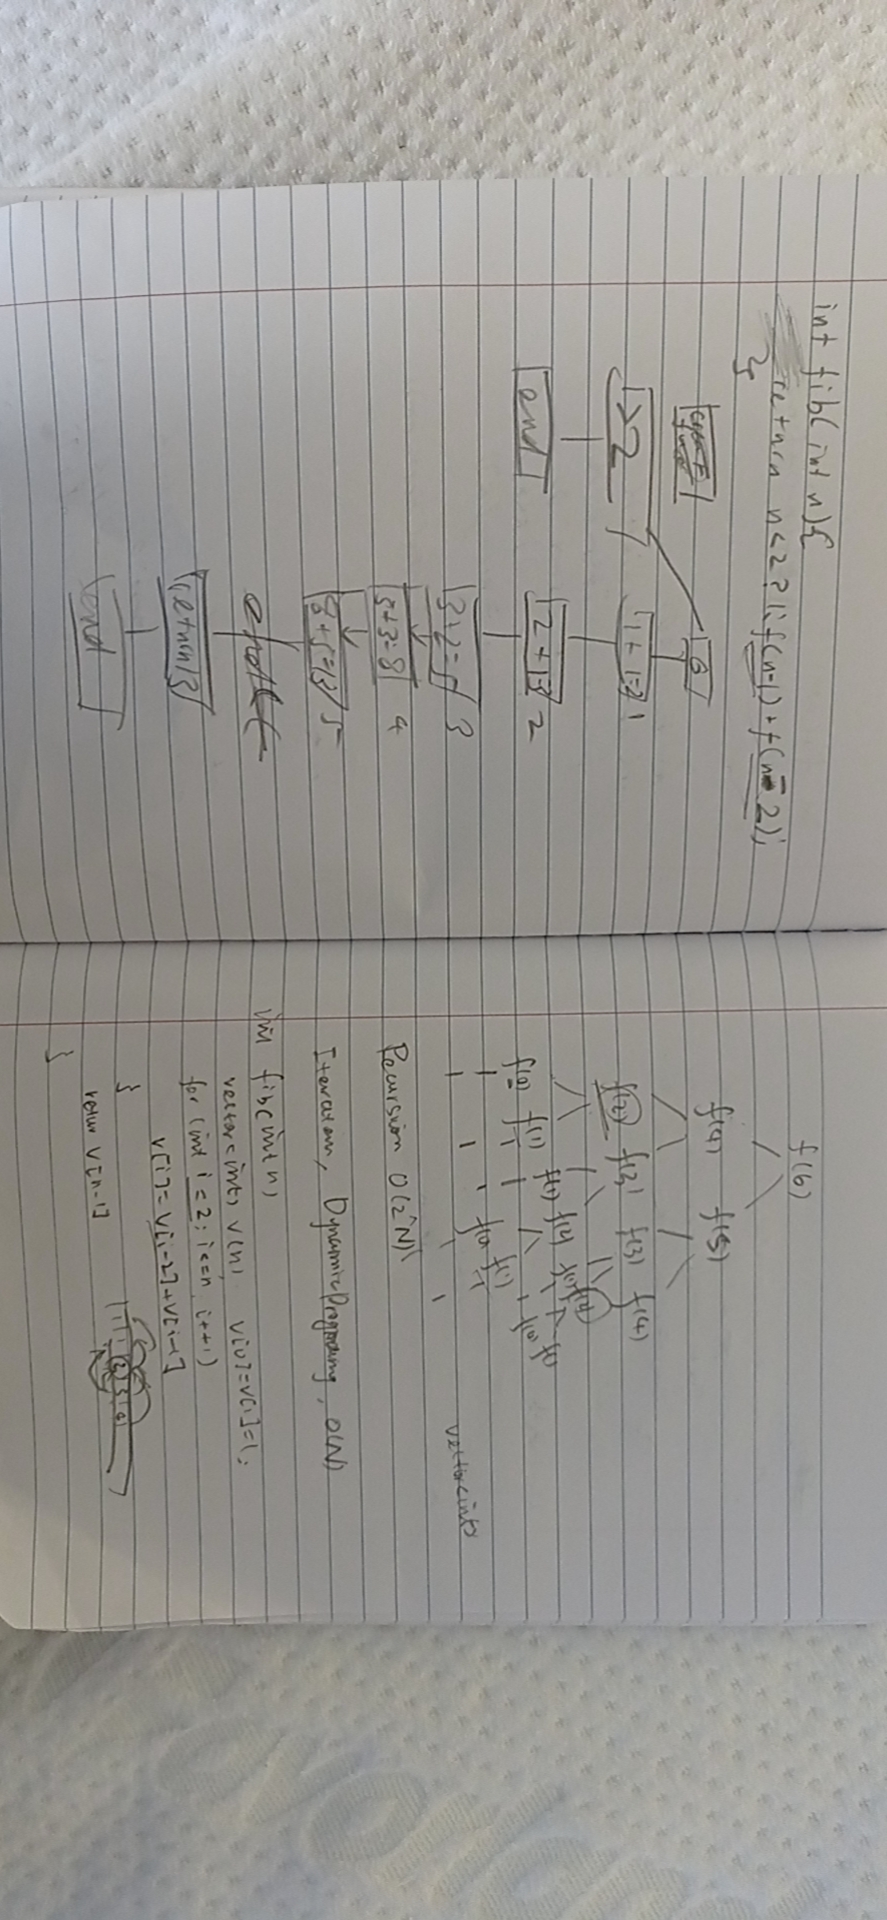 int fib(int n){
return n<2?1:f(n-1)+f(n-2);
}
6
>2
1+1=2 1
end
2+1=3 2
3+2=5 3
5+3=8 4
8+5=13 5
return 13
end
f(6)
f(4) f(5)
f(2) f(3) f(3) f(4)
f(0) f(1) f(1) f(2) f(1) f(2)
f(0) f(1) f(0) f(1)
vector<int>
Recursion O(2^N)
Iteration, Dynamic Programming, O(N)
int fib(int n)
vector<int> v(n), v[0]=v[1]=1;
for (int i=2; i<=n, i++)
v[i]=v[i-2]+v[i-1]
}
return v[n-1]
}